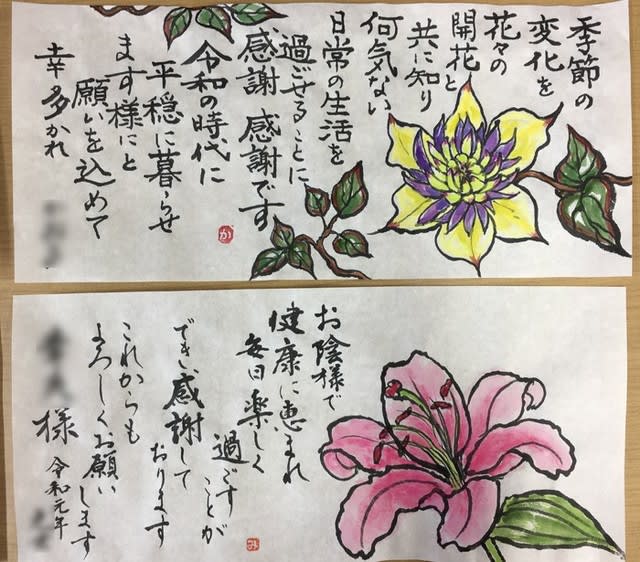 季節の
変化を
花々の
開花と
共に知り
何気ない
日常の生活を
過ごせることに
感謝感謝です
令和の時代に
平穏に暮らせ
ます様にと
願いを込めて
幸多かれ
か
お陰様で
健康に恵まれ
毎日楽しく
過ごすことが
でき感謝して
おります
これからも
よろしくお願い
します
様
令和元年
み